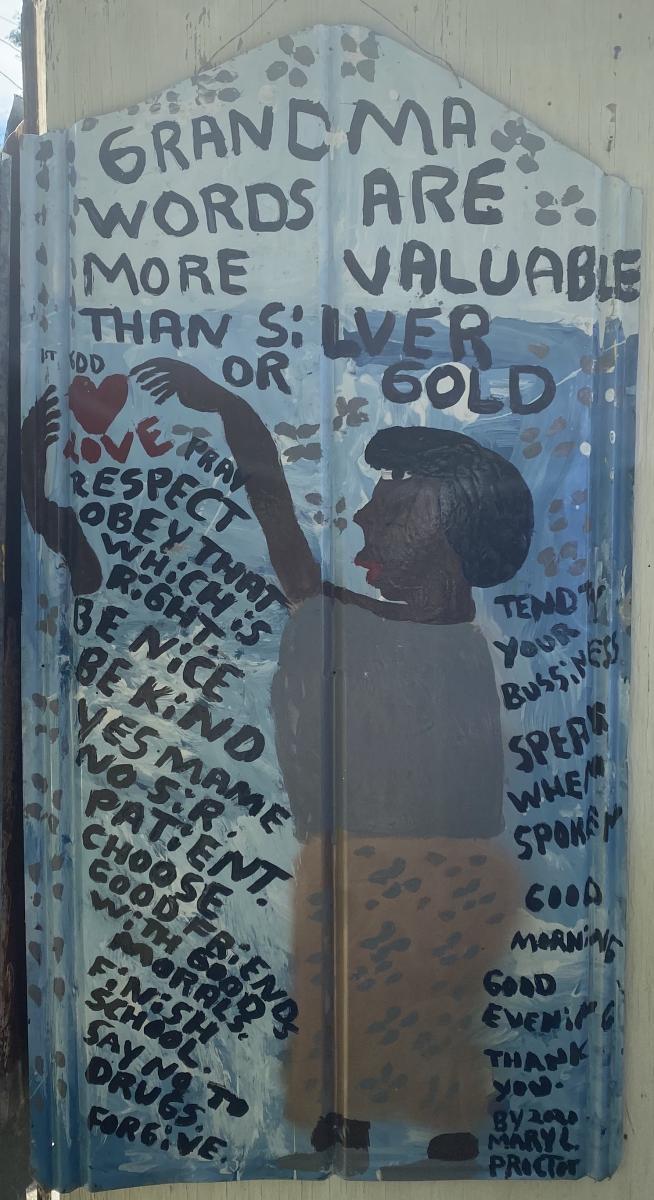 GRANDMA
WORDS ARE
MORE VALUABLE
THAN SiLVER
OR GOLD
LOVE
PRAY
RESPECT
OBEY THAT
WHiCH iS
RiGHT.
BE NiCE
BE KiND
YES MAME
NO SiR.
PATiENT.
CHOOSE
GOOD FRiENDS
WiTH GOOD
MORALS.
FiNiSH
SCHOOL.
SAY NO TO
DRUGS.
FORGiVE.
TEND
YOUR
BUSSiNESS
SPEAK
WHEN
SPOKEN
GOOD
MORNiNG
GOOD
EVENiNG
THANK
YOU.
BY 2020
MARY L
PROCTOR